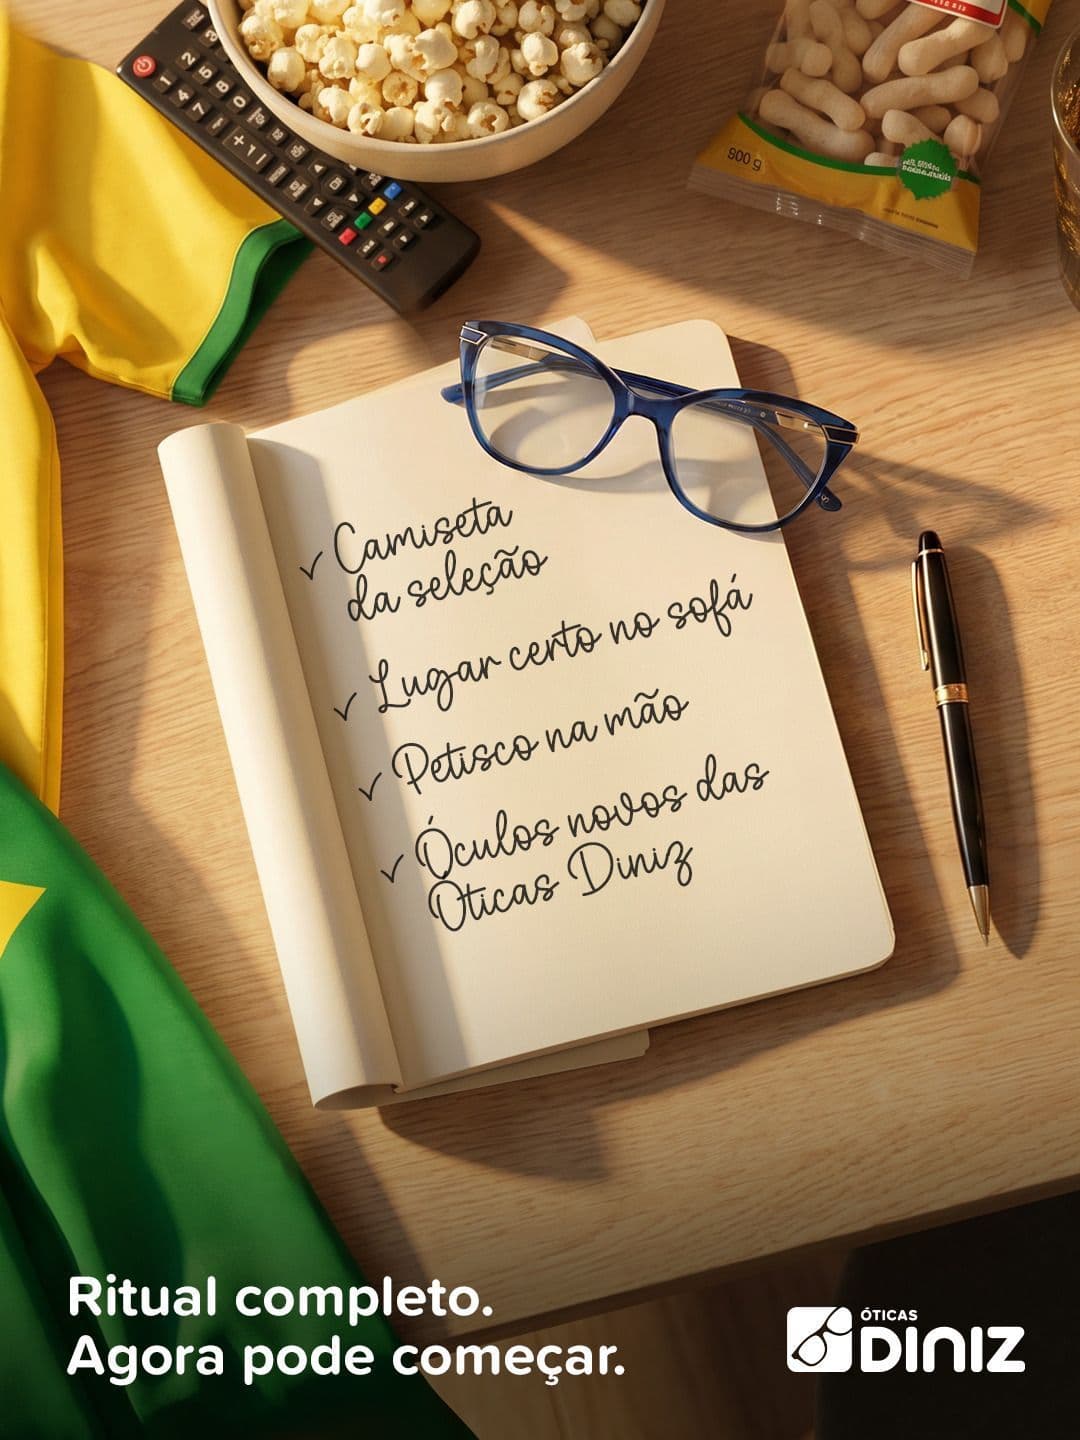 900 g
✓ Camiseta
da seleção
✓ Lugar certo no sofá
✓ Petisco na mão
✓ Óculos novos das
Óticas Diniz
Ritual completo.
Agora pode começar.
ÓTICAS
DINIZ